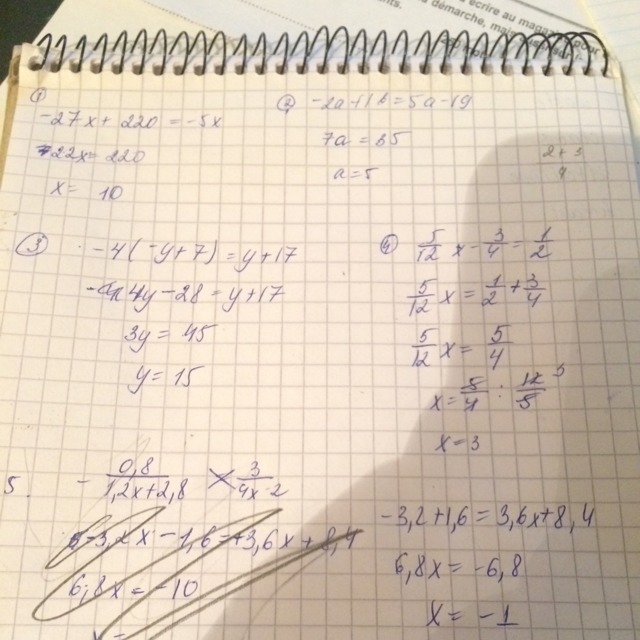 écrire au magazine pour
démarche, main
①
-27x + 220 = -5x
22x = 220
x = 10
②
-2a + 16 = 5a - 19
7a = 35
a = 5
2 + 3
4
③
-4(-y + 7) = y + 17
4y - 28 = y + 17
3y = 45
y = 15
④
5/12 x - 3/4 = 1/2
5/12 x = 1/2 + 3/4
5/12 x = 5/4
x = 5/4 : 12/5 3
x = 3
5.
- 0,8/1,2x+2,8 3/4x-2
-3,2x - 1,6 = +3,6x + 8,4
6,8x = -10
x =
-3,2 + 1,6 = 3,6x + 8,4
6,8x = -6,8
x = -1